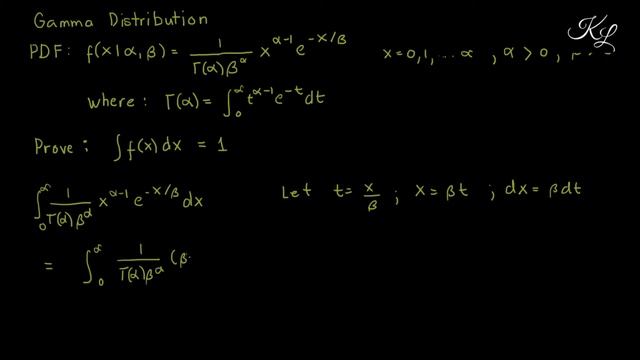 Gamma Distribution
KL
PDF: f(x|α,β) = 1/(Γ(α)β^α) x^(α-1) e^(-x/β)    x=0,1,...α , α>0 ,
where: Γ(α) = ∫_0^α t^(α-1) e^(-t) dt
Prove: ∫f(x)dx = 1
∫_0^α 1/(Γ(α)β^α) x^(α-1) e^(-x/β) dx    Let t = x/β ; x = βt ; dx = βdt
= ∫_0^α 1/(Γ(α)β^α) (β